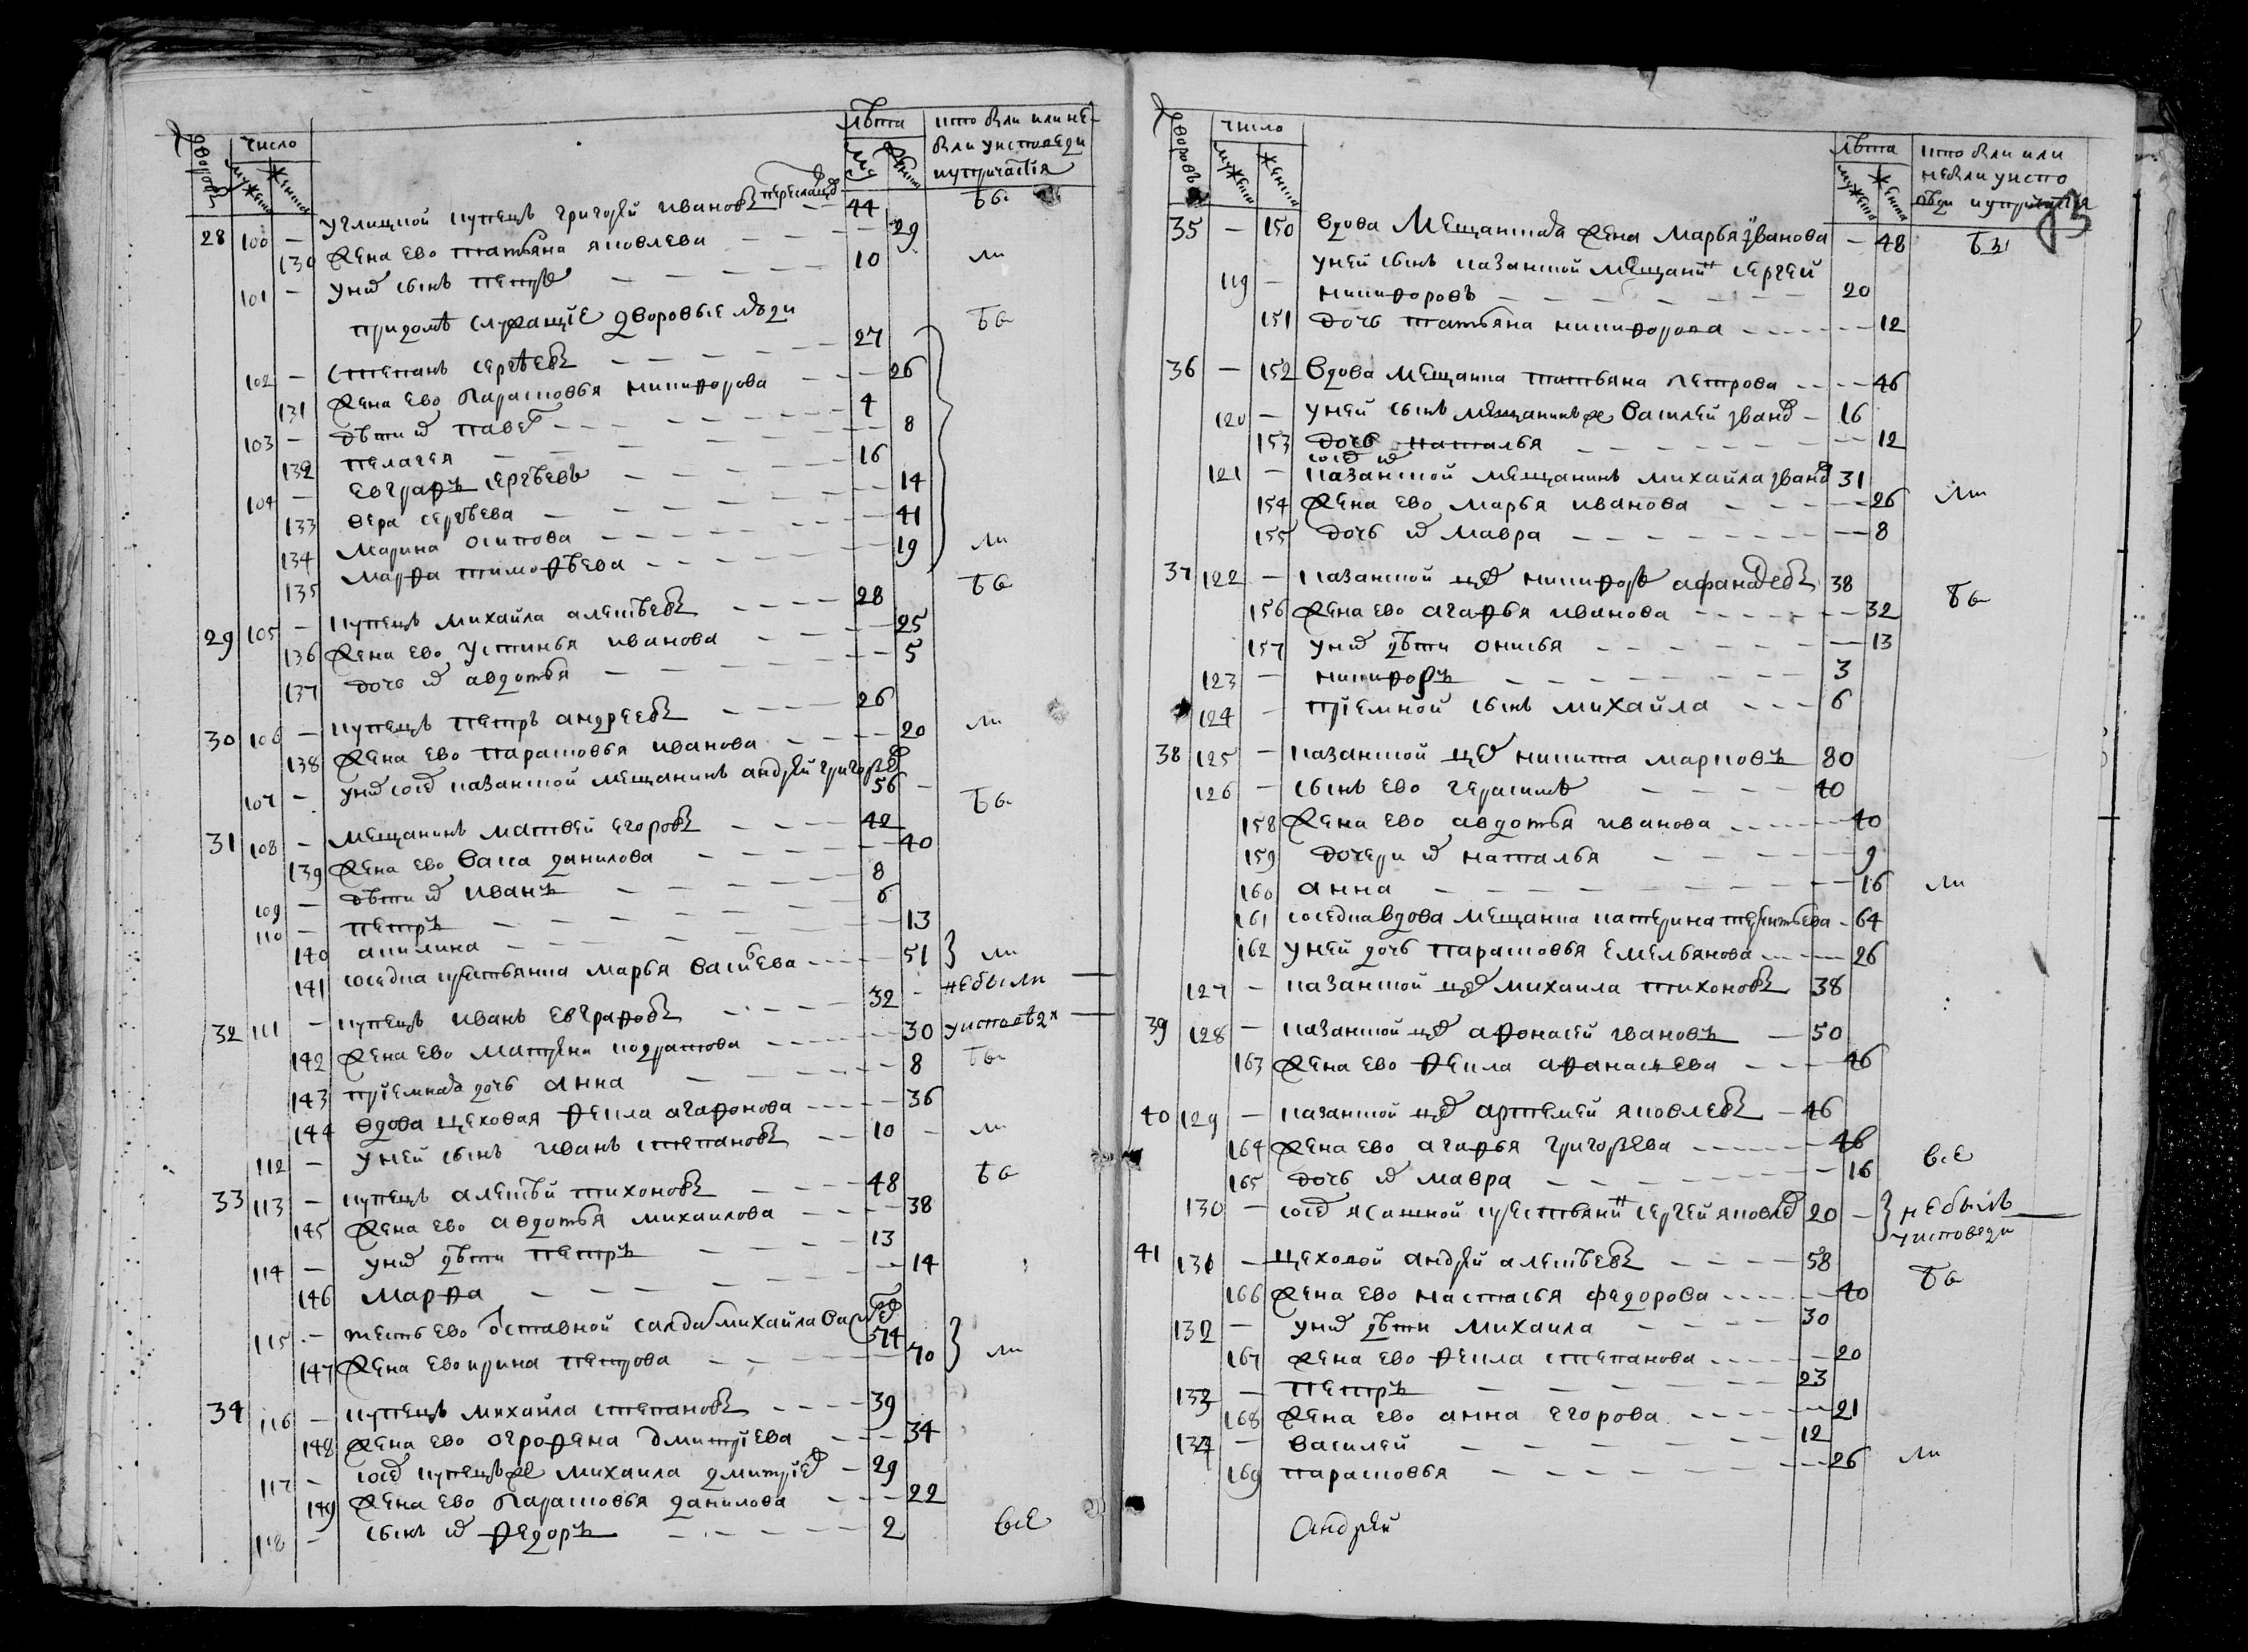 дворовъ число лѣта кто были или не
мужска женска муж женска были у исповеди
и у причастїя
28 100 — углицкой купецъ григорей ивановъ переславц — 44 бы
130 жена ево татьяна яковлева — 29
101 — у них сынъ петръ — 10 ли
при домѣ служащїе дворовые люди бы
102 — степанъ сергѣевъ — 27
131 жена ево парасковья никифорова — 26
103 — дѣти их павел — 4
132 пелагея — 8
104 — евграфъ сергѣевъ — 16
133 вера сергѣева — 14
134 марина осипова — 41
135 марфа тимофѣева — 19 ли
29 105 — купецъ михайла алексѣевъ — 28 бы
136 жена ево устинья иванова — 25
137 дочь их авдотья — 5
30 106 — купецъ петръ андреевъ — 26
138 жена ево парасковья иванова — 20 ли
107 — у них сосед казанской мещанинъ андрей григорьев 56 —
31 108 — мещанинъ матвей егоровъ — 42 бы
139 жена ево васса данилова — 40
109 — дѣти их иванъ — 8
110 — петръ — 6
140 акилина — 13
141 соседка крестьянка марья васильева — 51 ли
32 111 — купецъ иванъ евграфовъ — 32 — не были
142 жена ево матрена кодратова — 30 у исповѣди
143 прїемная дочь анна — 8 бы
144 вдова цеховая фекла агафонова — 36
112 — у ней сынъ иванъ степановъ — 10 — ли
33 113 — купецъ алексѣй тихоновъ — 48 бы
145 жена ево авдотья михаилова — 38
114 — у них дѣти петръ — 13
146 марфа — 14
115 — тесть ево отставной салдат михайла васильев 74
147 жена ево ирина петрова — 70 ли
34 116 — купецъ михайла степановъ — 39
148 жена ево огрофена дмитрїева — 34
117 — сосед купецъ же михаила дмитрїев — 29
149 жена ево парасковья данилова — 22
118 — сынъ их федоръ — 2 все
дворовъ число лѣта кто были или
мужска женска мужска женска не были у испо
вѣди и у причастїя
35 — 150 вдова мещанская жена марья иванова — 48 бы
119 — у ней сынъ казанской мещанинъ сергей
никифоровъ — 20
151 дочь татьяна никифорова — 12
36 — 152 вдова мещанка татьяна петрова — 46
120 — у ней сынъ мещанинъ же василей иванов — 16
153 дочь наталья — 12
сосед их
121 — казанской мещанинъ михайла иванов 31
154 жена ево марья иванова — 26 ли
155 дочь их мавра — 8
37 122 — казанской цех никифор афанасьевъ 38
156 жена ево агафья иванова — 32 бы
157 у них дѣти онисья — 13
123 — никифоръ — 3
124 — прїемной сынъ михайла — 6
38 125 — казанской цех никита марковъ 80
126 — сынъ ево герасим — 40
158 жена ево авдотья иванова — 40
159 дочери их наталья — 9
160 анна — 16 ли
161 соседка вдова мещанка катерина терентьева — 64
162 у ней дочь парасковья емельянова — 26
127 — казанской цех михаила тихоновъ 38
39 128 — казанской цех афонасей ивановъ — 50
163 жена ево фекла афанасьева — 46
40 129 — казанской цех артемей яковлевъ — 46
164 жена ево агафья григорьева — 46
165 дочь их мавра — 16 все
130 — сосед ясашной крестьянинъ сергей яковлев 20 — не былъ
у исповеди
41 131 — цеховой андрей алексѣевъ — 58
166 жена ево настасья федорова — 40 бы
132 — у них дѣти михаила — 30
167 жена ево фекла степанова — 20
133 — петръ — 23
168 жена ево анна егорова — 21
134 — василей — 12
169 парасковья — 26 ли
Андрей